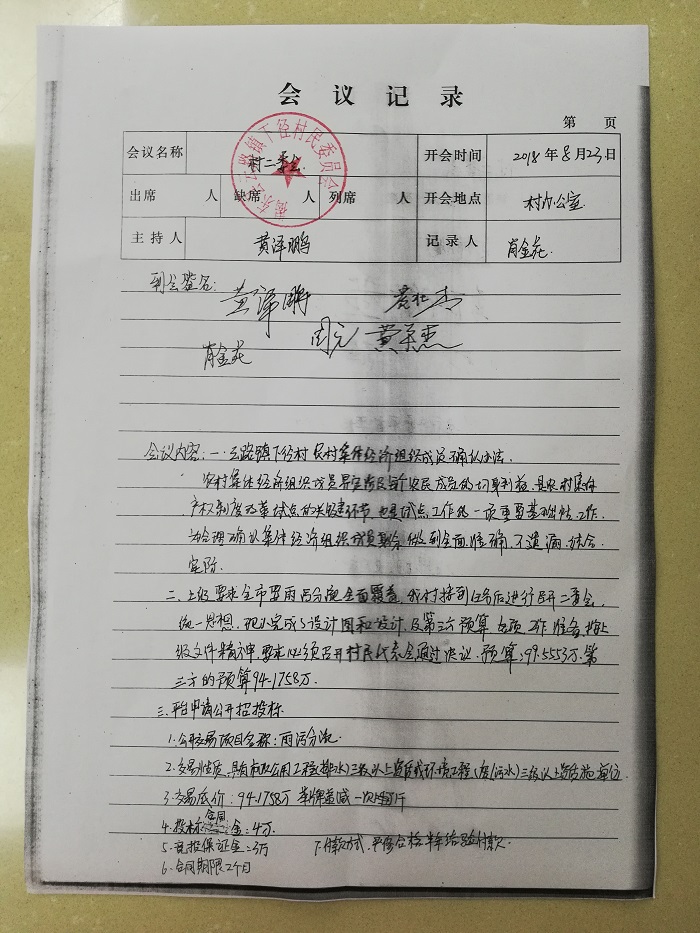 会议记录
第 页
会议名称 村二委会 开会时间 2018年8月23日
出席 人 缺席 人 列席 人 开会地点 村办公室
主持人 黄泽鹏 记录人 肖金花
云路镇下径村民委员会
到会签名:
黄泽鹏
周元 黄
肖金花
会议内容:一、云路镇下径村农村集体经济组织成员确认办法
农村集体经济组织成员界定涉及每个农民成员的切身利益,是农村集体
产权制度改革试点的关键环节,也是试点工作的一项重要基础性工作.
为合理确认集体经济组织成员身份,做到全面准确,不遗漏,结合
实际.
二、上级要求全市要雨污分流全面覆盖,我村接到任务后进行召开二委会,
统一思想,现已完成了设计图和设计,及第三方预算各项工作准备,按上
级文件精神,要求必须召开村民代表会通过决议.预算:99.5553万.第
三方的预算94.1758万.
三、平台申请公开招投标.
1.公开交易项目名称:雨污分流
2.交易性质:具有市政公用工程(排水)三级以上资质或环境工程(废(污水)三级以上资质施单位.
3.交易底价:94.1758万 举牌 一次
4.投标合同金:4万.
5.竞投保证金:3万 7.付款方式: 付款.
6.合同期限2个月